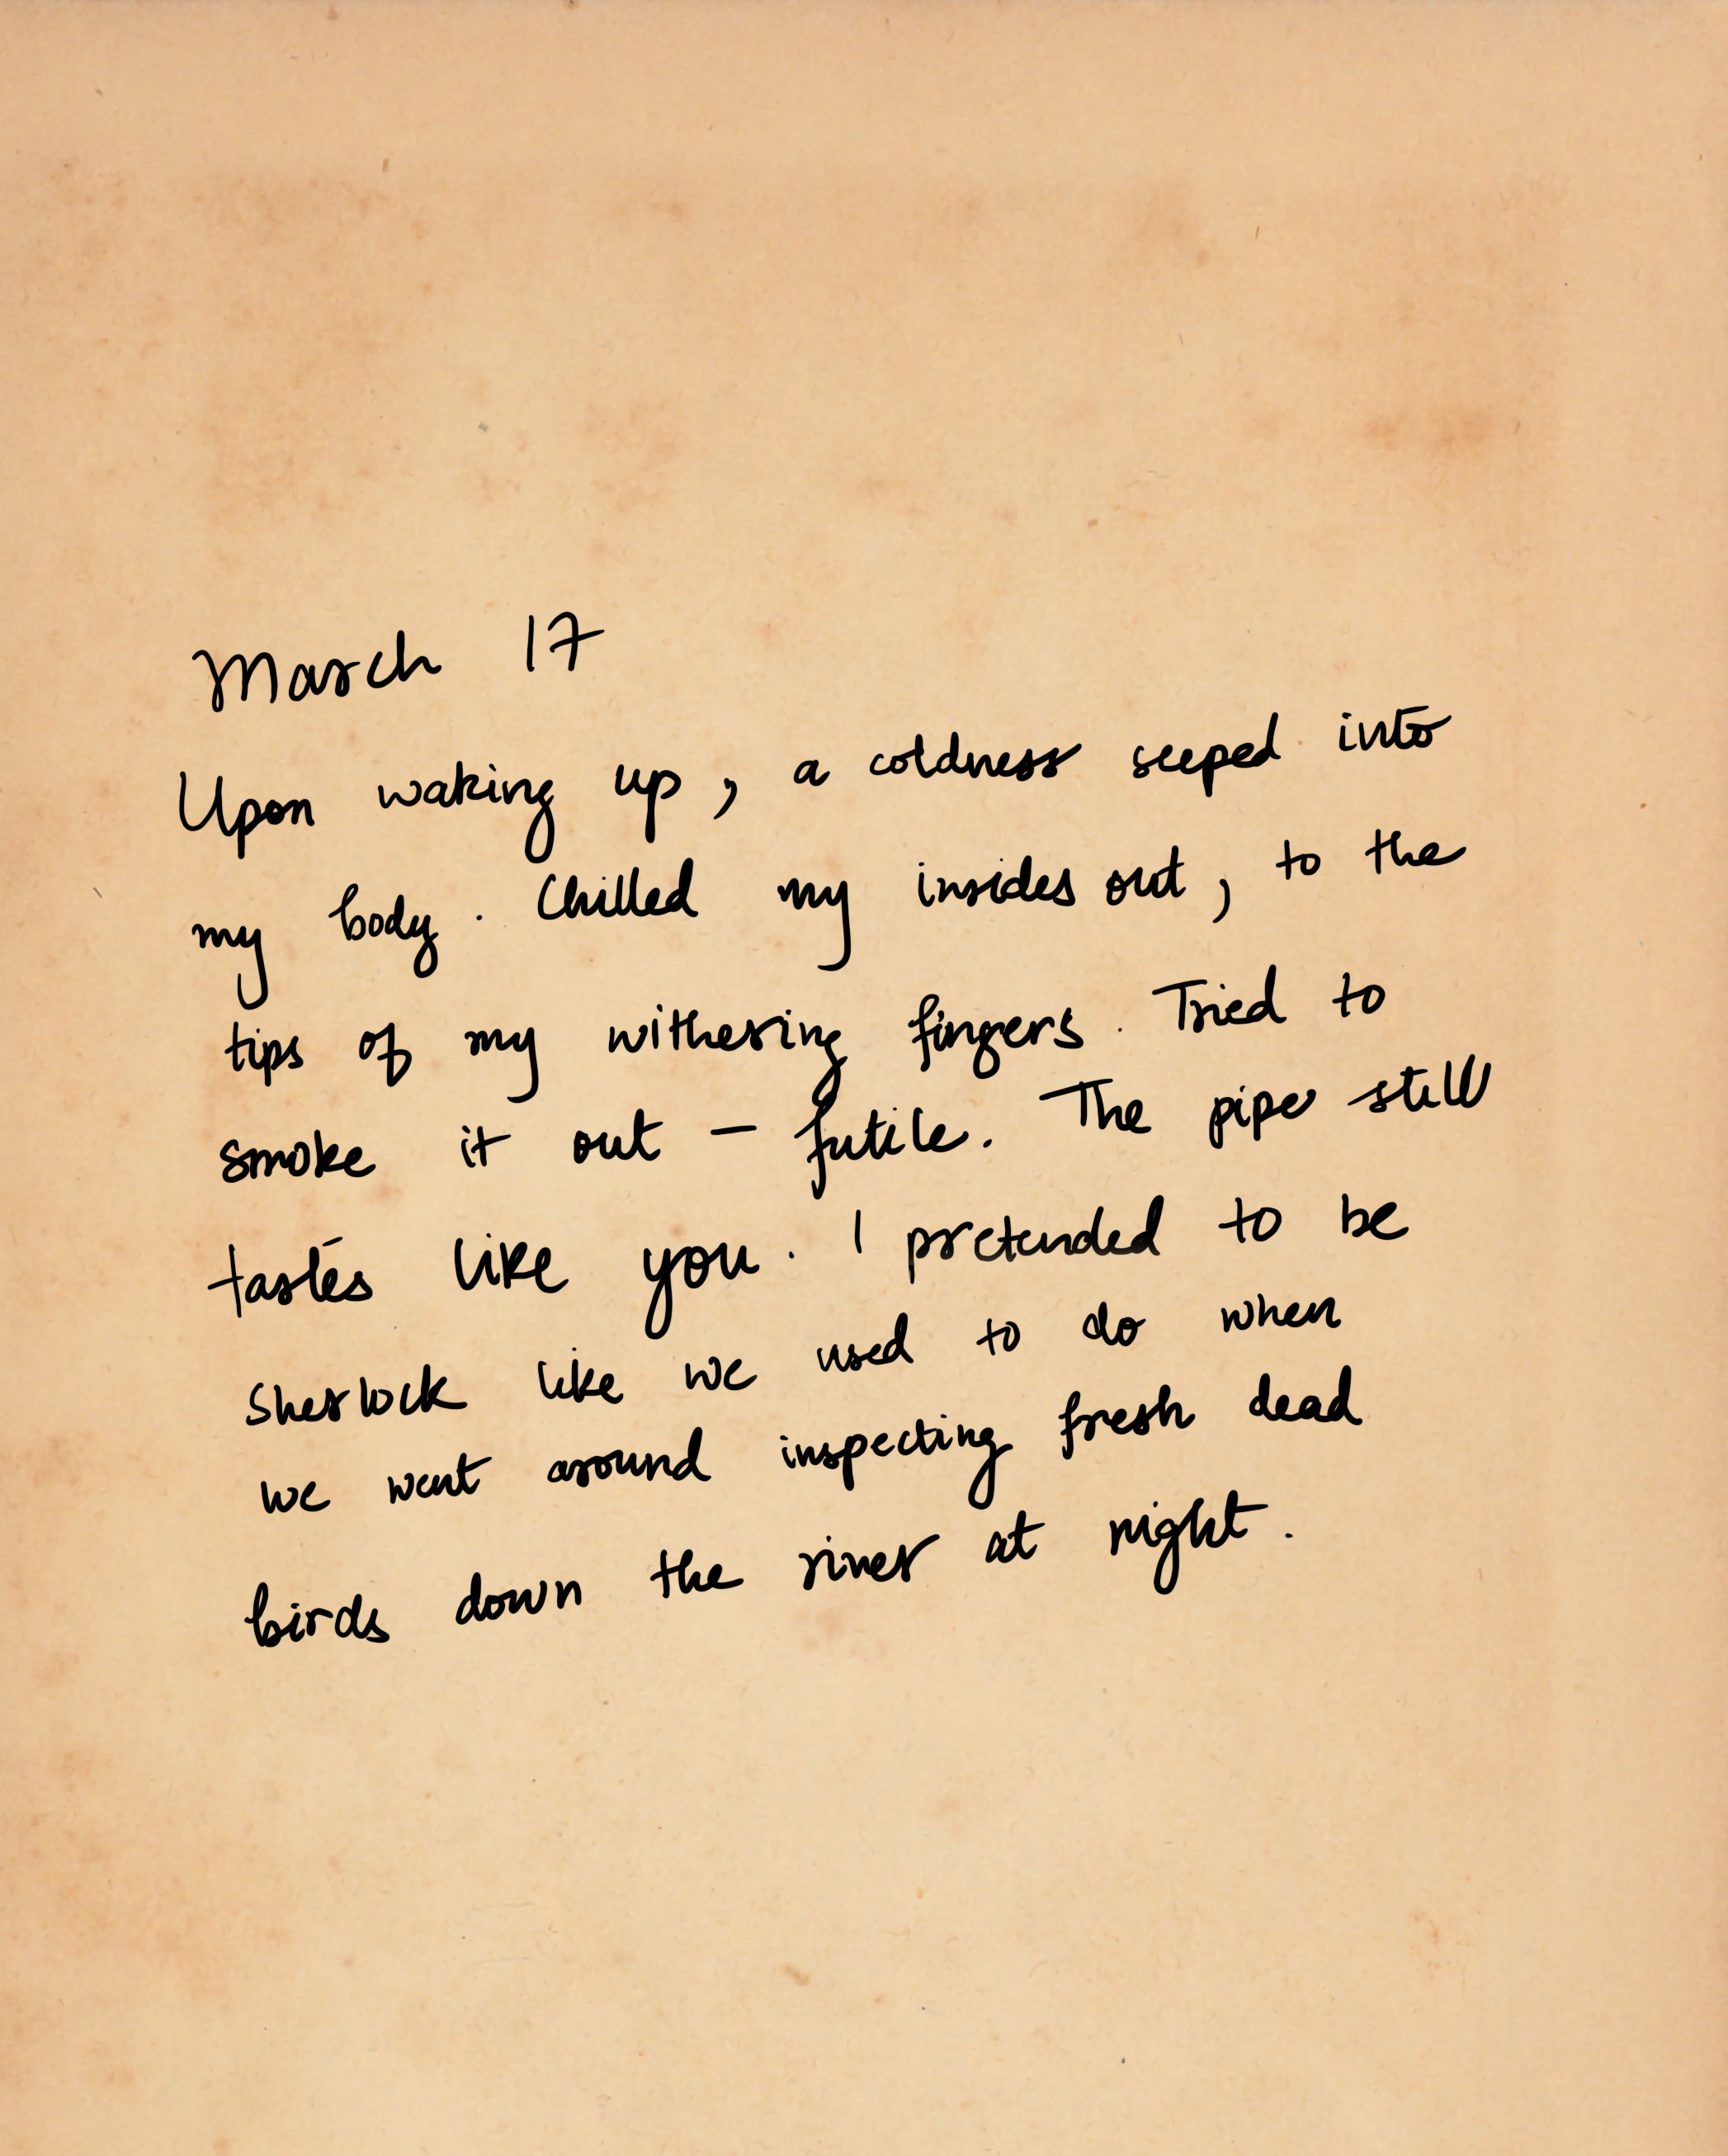 March 17
Upon waking up, a coldness seeped into
my body. Chilled my insides out, to the
tips of my withering fingers. Tried to
smoke it out – futile. The pipe still
tastes like you. I pretended to be
Sherlock like we used to do when
we went around inspecting fresh dead
birds down the river at night.